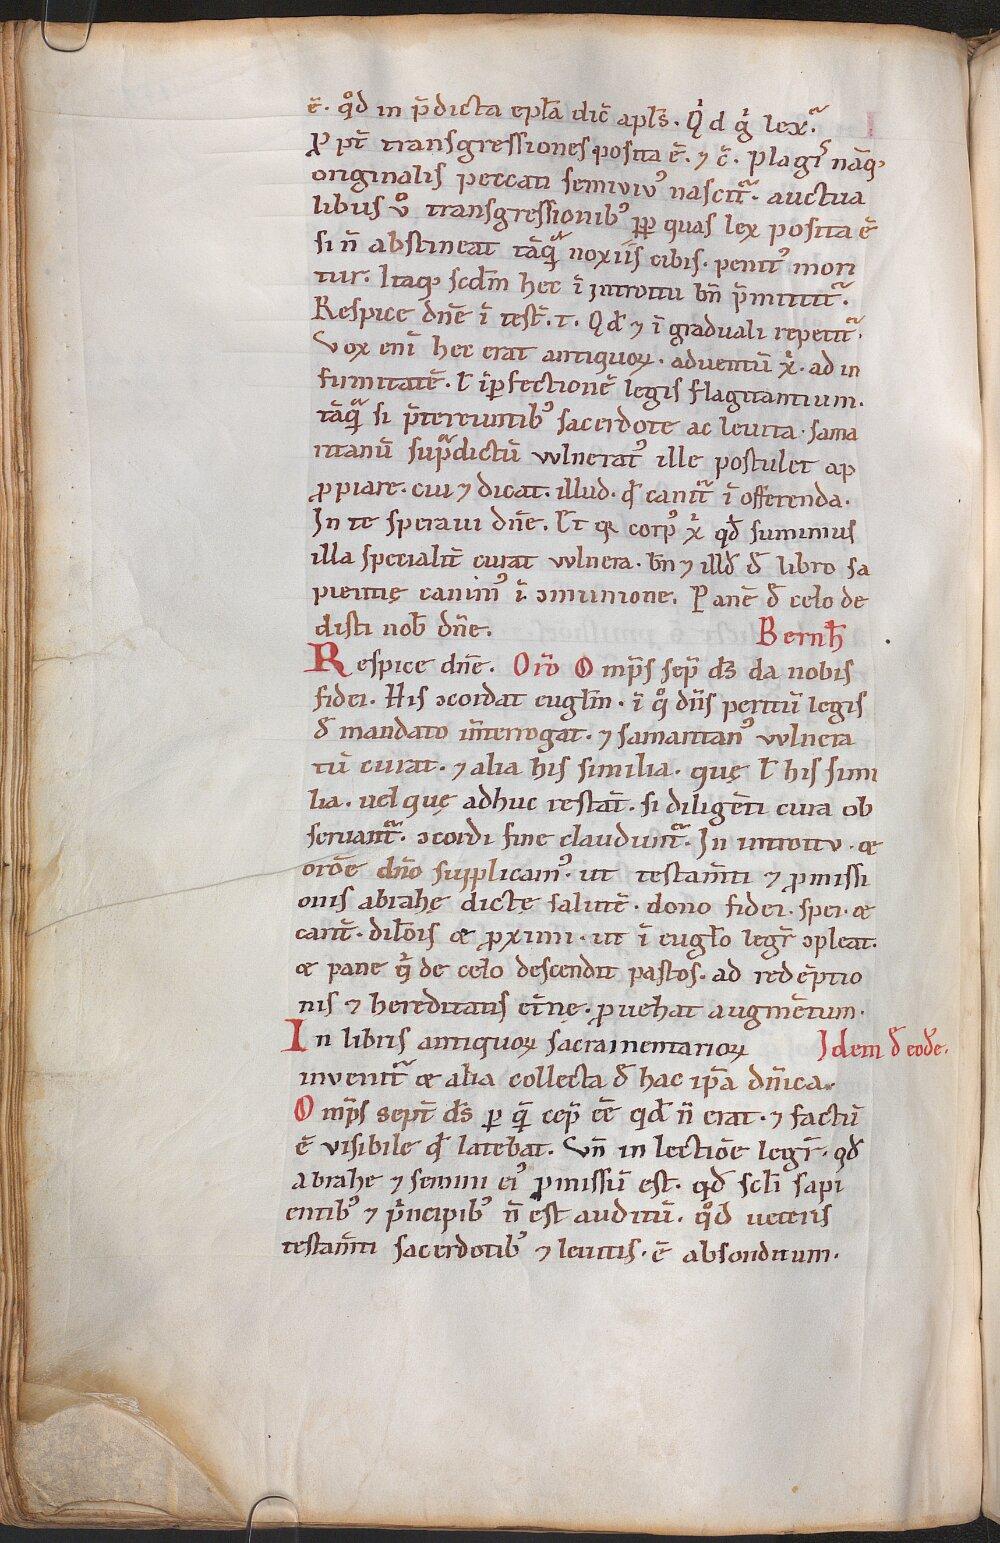 ē. qd̊ in p̄dicta ep̄la dic̄ apl̄s. Qͥ d gͥ lex.
ꝓpt̄ transgressiones posita ē. ⁊ c̄. Plagis nāq;
originalis peccati semiviuꝰ nascit᷑. auctua
libus ů transgressionibꝰ ꝓꝑ quas lex posita ē
si n̄ abstineat tāqͣ noxiis cibis. penitꝰ mori
tur. Itaq; scd̄m hec ī introitu bn̄ p̄mittit᷑.
Respice dn̄e ī test̄. t. Qd̄ ⁊ ī graduali repetit᷑.
Vox eni hec erat antiquoꝝ. aduentū xͥ. ad in
firmitatē. ł īꝑfectionē legis flagitantium.
tāqͣ si p̄tereuntibꝰ sacerdote ac leuita. sama
ritanū sup͛dictū vulneratꝰ ille postulet ap
ꝓpiare. cui ⁊ dicat. illud. qd̄ canit᷑ ī offerenda.
In te speraui dn̄e. Et qr corpꝰ xͥ qd̄ sumimus
illa specialit̄ curat vulnera. bn̄ ⁊ illd̄ đ libro sa
pientię canimꝰ ī ɔmunione. Panē đ celo de
disti nob̄ dn̄e. Bernh̄
Respice dn̄e. Or̄o Omp̄s sep̄ ds̄ da nobis
fidei. His ɔcordat eugl̄m. ī qͦ dn̄s peritū legis
đ mandato int̄errogat. ⁊ samaritanꝰ vulnera
tū curat. ⁊ alia his similia. quę ł his simi
lia. uel quę adhuc restāt. si diligēti cura ob
seruant᷑. ɔcordi fine claudunt᷑. In introitu. æ
orōe dn̄o supplicamꝰ. ut testam̄ti ⁊ ꝓmissi
onis abrahę dictę salutē. dono fidei. spei. æ
carit̄. dil̄ois æ ꝓximi. ut ī eugl̄o legr̄ ɔpleat.
æ pane qͥ de celo descendit pastos. ad redēptio
nis ⁊ hereditatis et̄nę. ꝓuehat augmētum.
In libris antiquoꝝ sacramentarioꝝ Idem đ eodē.
inuenit᷑ æ alia collecta đ hac ip̄a dn̄ica.
Omp̄s sept̄ ds̄ ꝑ qͣ cep̄ ēē qd̄ n̄ erat. ⁊ factū
ē visibile qd̄ latebat. Vn̄ in lectiōe legr̄. qd̄
abrahe ⁊ semini eiꝰ ꝓmissū est. qd̄ scl̄i sapi
entibꝰ ⁊ pͥncipibꝰ n̄ est auditū. qd̊ ueteris
testam̄ti sacerdotibꝰ ⁊ leuitis. ē absonditum.